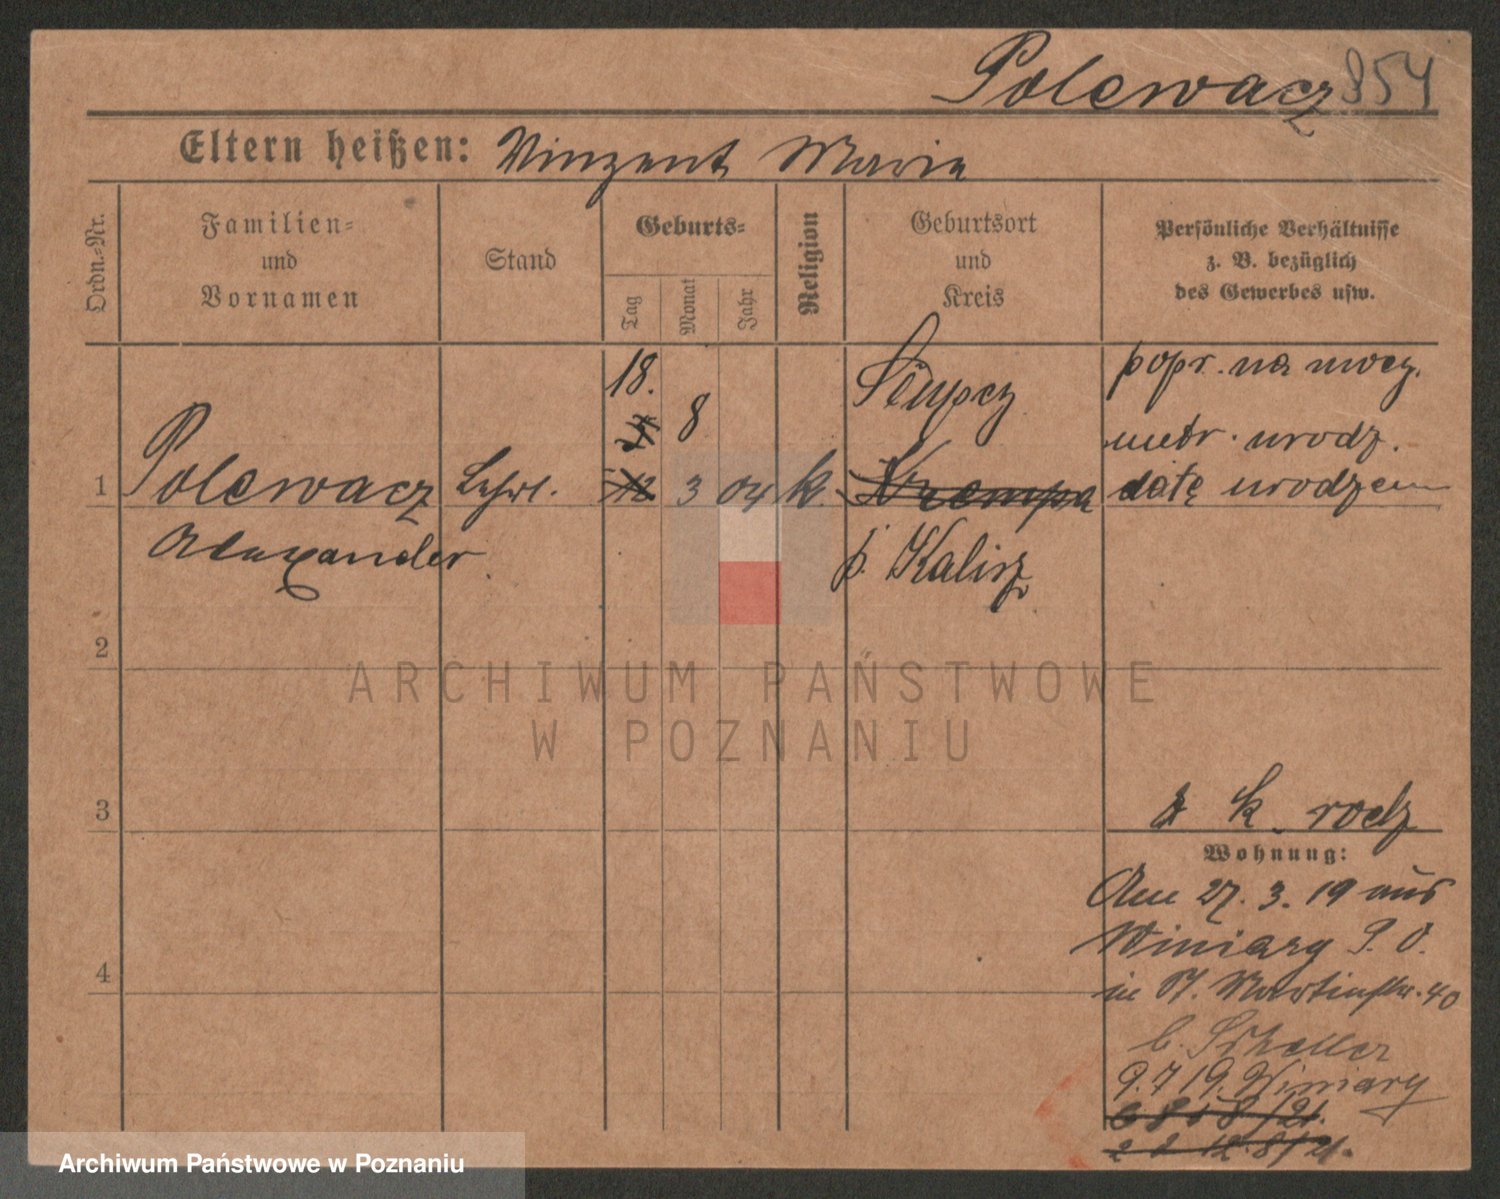 Polewacz 954
Eltern heißen: Vinzent Marie
Ordn.-Nr.
Familien-
und
Vornamen
Stand
Geburts-
Tag
Monat
Jahr
Religion
Geburtsort
und
Kreis
Persönliche Verhältnisse
z. B. bezüglich
des Gewerbes usw.
18.
8
Słupcy
popr. na mocy.
metr. urodz.
1 Polewacz Lehrl. 12 3 04 k. Krempa datę urodzenia
Alexander
p. Kalisz
2
ARCHIWUM PAŃSTWOWE
W POZNANIU
3
k. rodz
Wohnung:
Am 27. 3. 19 aus
Winiary P. O.
4
in St. Martinstr. 40
b. Scheller
9. 7 19. Winiary
Archiwum Państwowe w Poznaniu